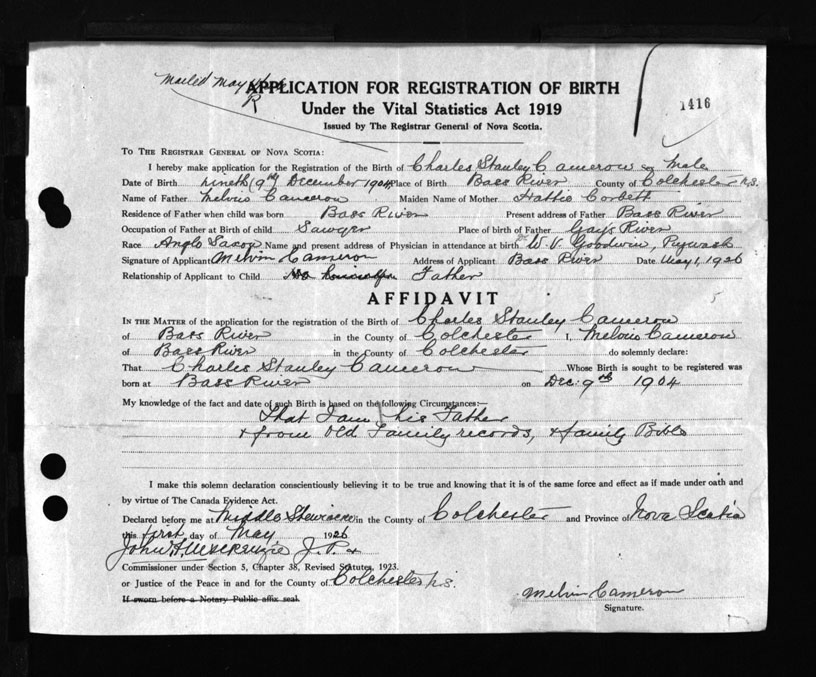 Mailed May
R
APPLICATION FOR REGISTRATION OF BIRTH
1416
Under the Vital Statistics Act 1919
Issued by The Registrar General of Nova Scotia.
TO THE REGISTRAR GENERAL OF NOVA SCOTIA:
I hereby make application for the Registration of the Birth of Charles Stanley Cameron sex Male
Date of Birth nineth (9th) December 1904 Place of Birth Bass River County of Colchester N.S.
Name of Father Melvin Cameron Maiden Name of Mother Hattie Corbett
Residence of Father when child was born Bass River Present address of Father Bass River
Occupation of Father at Birth of child Sawyer Place of birth of Father Gays River
Race Anglo Saxon Name and present address of Physician in attendance at birth Dr W. V. Goodwin, Pugwash
Signature of Applicant Melvin Cameron Address of Applicant Bass River Date May 1, 1926
Relationship of Applicant to Child Father
AFFIDAVIT
5
IN THE MATTER of the application for the registration of the Birth of Charles Stanley Cameron
of Bass River in the County of Colchester I, Melvin Cameron
of Bass River in the County of Colchester do solemnly declare:
That Charles Stanley Cameron Whose Birth is sought to be registered was
born at Bass River on Dec: 9th 1904
My knowledge of the fact and date of such Birth is based on the following Circumstances:—
That I am his Father
& from old Family records, & family Bible
I make this solemn declaration conscientiously believing it to be true and knowing that it is of the same force and effect as if made under oath and
by virtue of The Canada Evidence Act.
Declared before me at Middle Stewiacke in the County of Colchester and Province of Nova Scotia
this first day of May 1926
John H. McKenzie J. P. &
Commissioner under Section 5, Chapter 38, Revised Statutes, 1923.
or Justice of the Peace in and for the County of Colchester N.S.
If sworn before a Notary Public affix seal
Melvin Cameron
Signature.